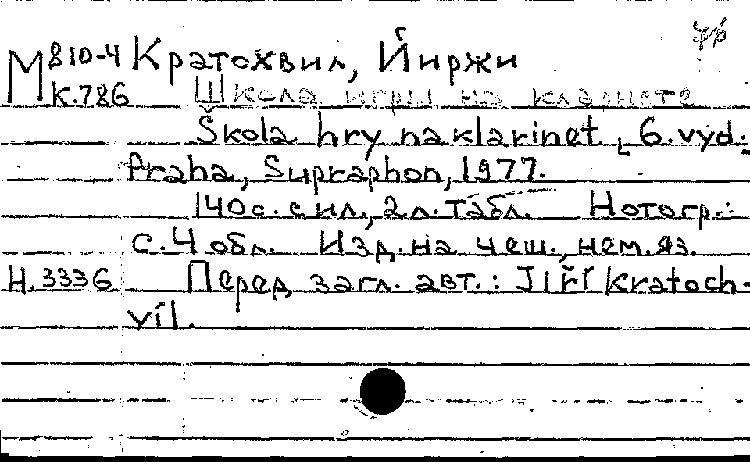 М 810-4 Кратохвил, Йиржи
К.786 Школа игры на кларнете
Škola hry na klarinet [6. vyd.]
Praha, Supraphon, 1977.
140 с. с ил., 2 л. табл. Нотогр.:
с. 4 обл. Изд. на чеш., нем. яз.
Н.3336 Перед загл. авт.: Jiří Kratoch-
víl.